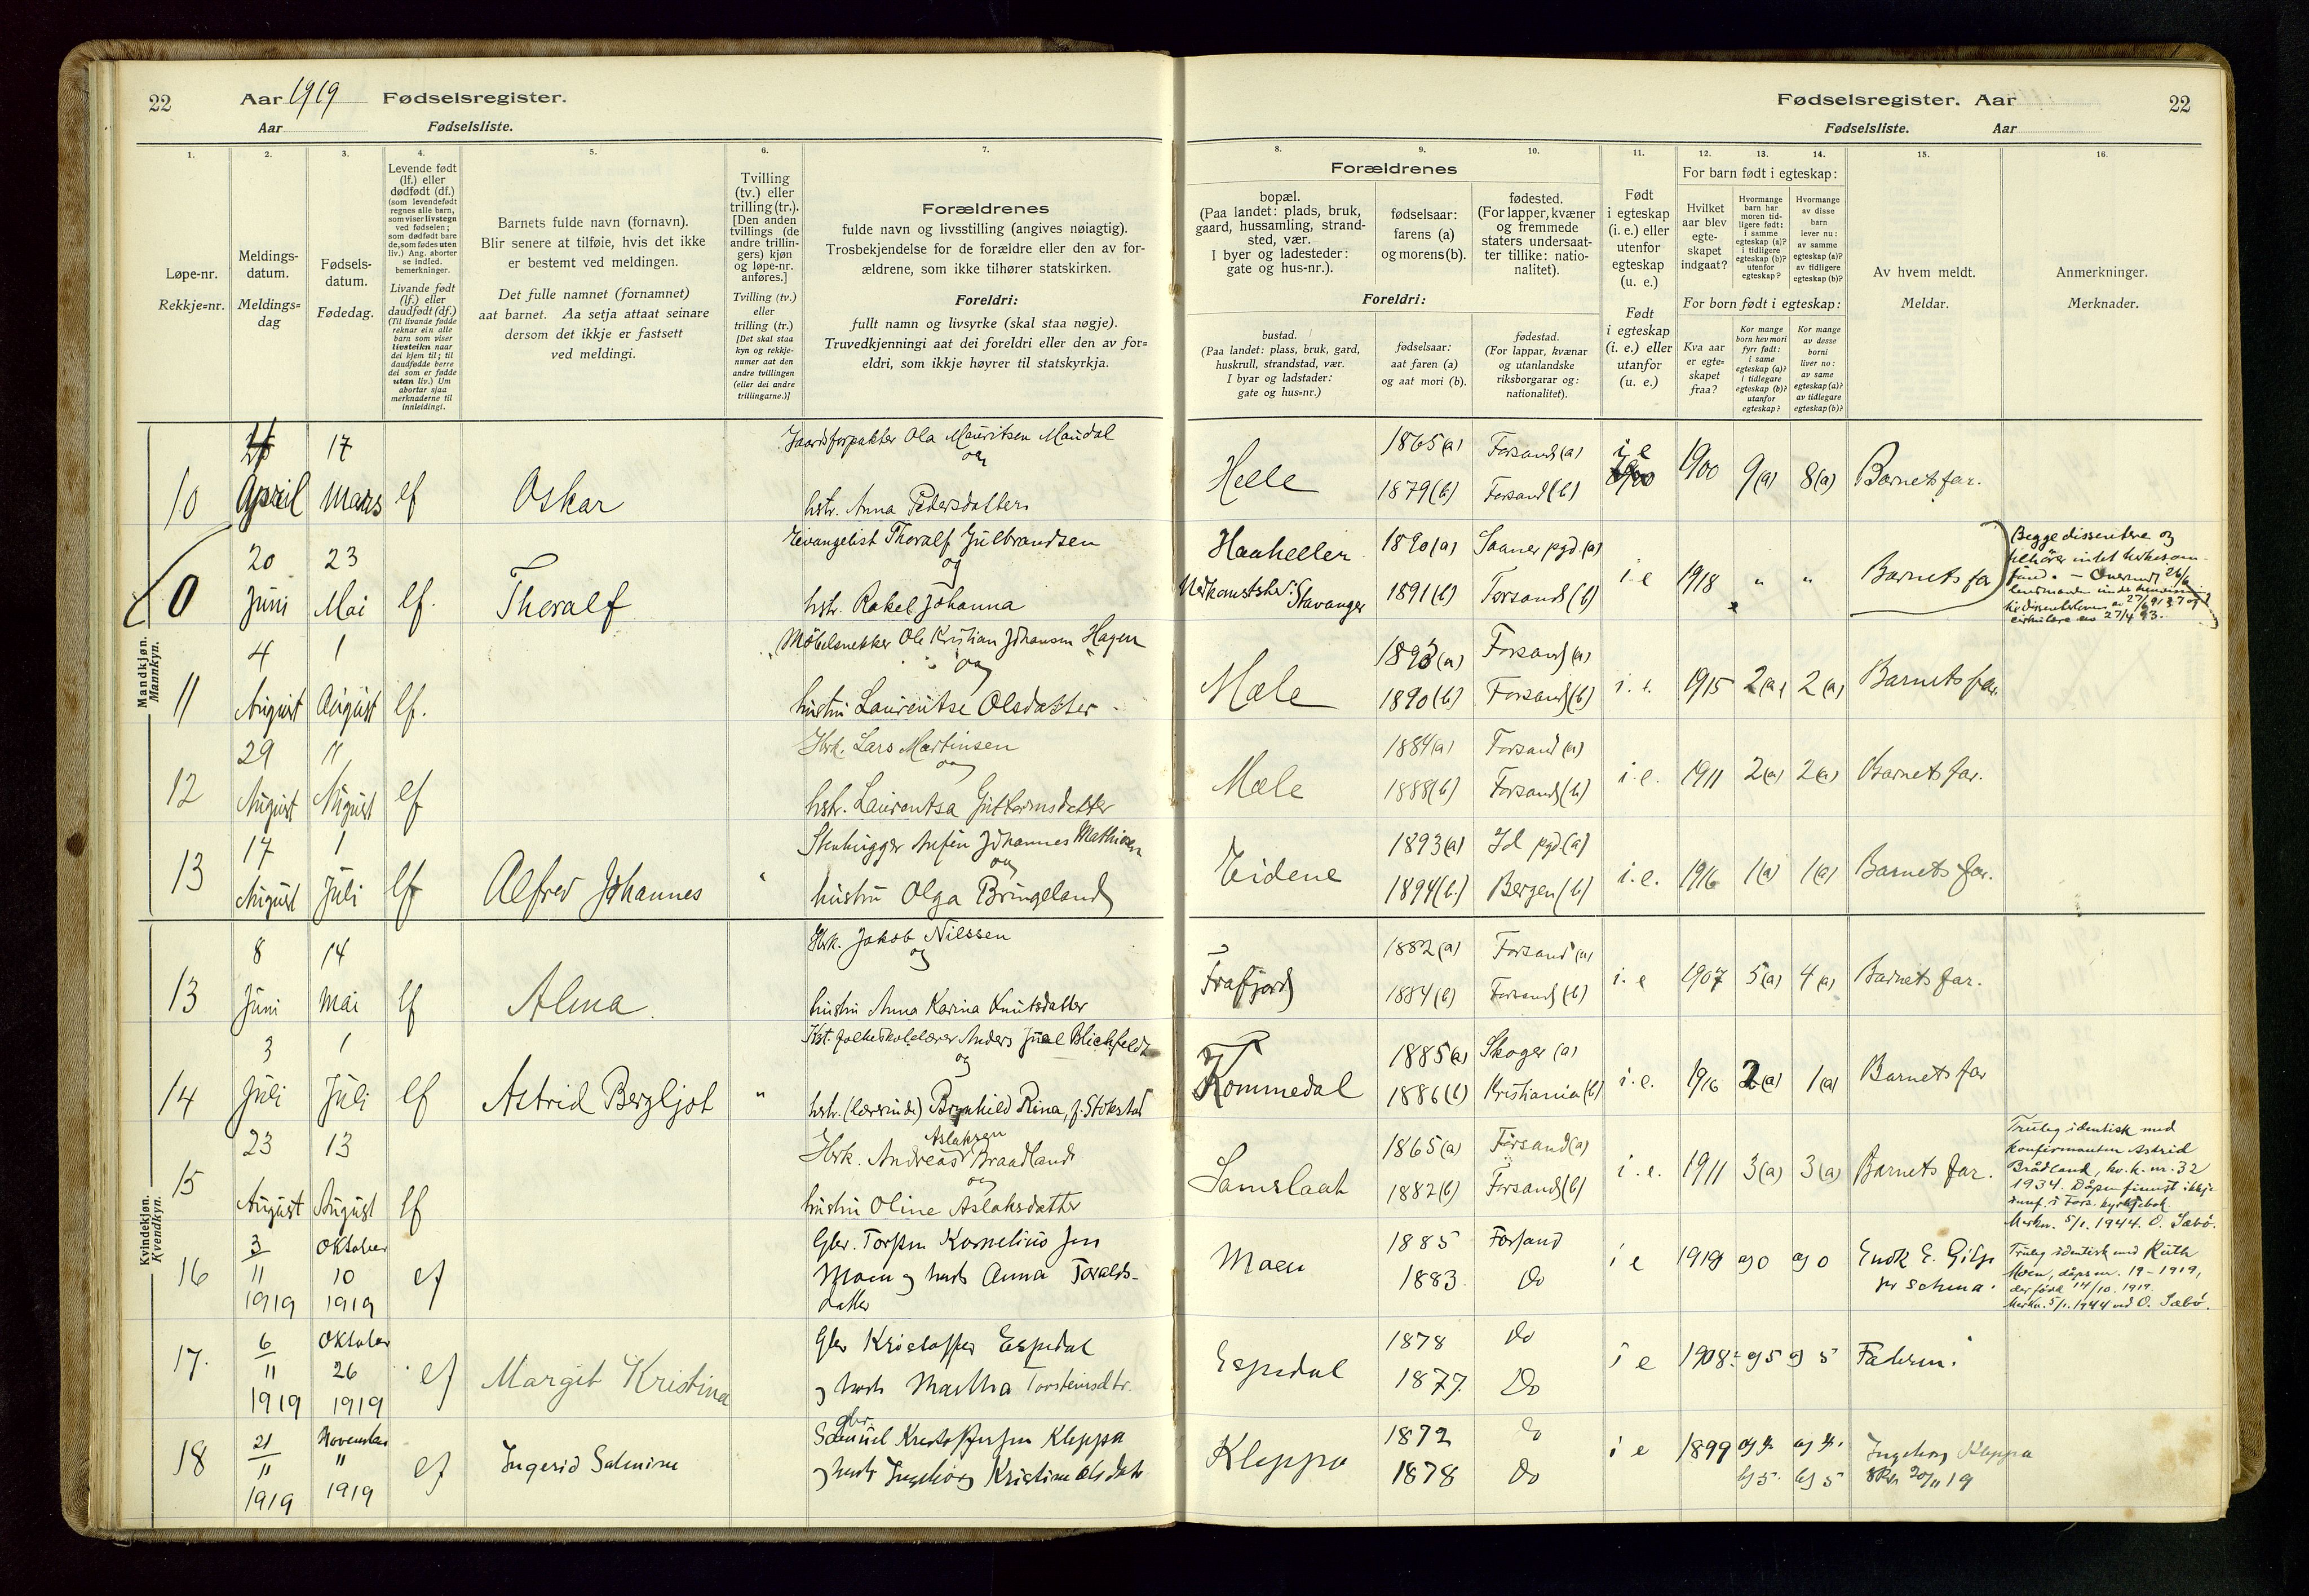 22 Aar 1919 Fødselsregister.
Aar Fødselsliste.
Fødselsregister. Aar 22
Fødselsliste. Aar
1. 2. 3. 4. 5. 6. 7. 8. 9. 10. 11. 12. 13. 14. 15. 16.
Løpe-nr.
Rekkje=nr.
Meldings-
datum.
Meldings=
dag
Fødsels-
datum.
Fødedag.
Levende født
(lf.) eller
dødfødt (df.)
(som levendefødt
regnes alle barn,
som viser livstegn
ved fødselen;
som dødfødt bare
de, som fødes uten
liv.) Ang. aborter
se indled.
bemerkninger.
Livande født
(lf.) eller
daudfødt (df.)
(Til livande fødde
reknar ein alle
barn som viser
livsteikn naar
dei kjem til; til
daudfødde berre
dei som er fødde
utan liv.) Um
abortar sjaa
merknaderne til
innleidingi.
Barnets fulde navn (fornavn).
Blir senere at tilføie, hvis det ikke
er bestemt ved meldingen.
Det fulle namnet (fornamnet)
aat barnet. Aa setja attaat seinare
dersom det ikkje er fastsett
ved meldingi.
Tvilling
(tv.) eller
trilling (tr.).
[Den anden
tvillings (de
andre trillin-
gers) kjøn
og løpe-nr.
anføres.]
Tvilling (tv.)
eller
trilling (tr.)
[Det skal staa
kyn og rekkje-
numer aat den
andre tvillingen
(eller dei andre
trillingarne.)]
Forældrenes
fulde navn og livsstilling (angives nøiagtig).
Trosbekjendelse for de forældre eller den av for-
ældrene, som ikke tilhører statskirken.
Foreldri:
fullt namn og livsyrke (skal staa nøgje).
Truvedkjenningi aat dei foreldri eller den av for=
eldri, som ikkje høyrer til statskyrkja.
Forældrenes
bopæl.
(Paa landet: plads, bruk,
gaard, hussamling, strand-
sted, vær.
I byer og ladesteder:
gate og hus-nr.).
fødselsaar:
farens (a)
og morens (b).
fødested.
(For lapper, kvæner
og fremmede
staters undersaat-
ter tillike: natio-
nalitet).
Foreldri:
bustad.
(Paa landet: plass, bruk, gard,
huskrull, strandstad, vær.
I byar og ladstader:
gate og hus=nr.)
fødselsaar:
aat faren (a)
og aat mori (b).
fødestad.
(For lappar, kvænar
og utanlandske
riksborgarar og:
nationalitet).
Født
i egteskap
(i. e.) eller
utenfor
egteskap
(u. e.)
Født
i egteskap
(i. e.) eller
utanfor
(u. e.)
For barn født i egteskap:
Hvilket
aar blev
egte-
skapet
indgaat?
Hvormange
barn har
moren tid-
ligere født:
i samme
egteskap (a)?
i tidligere
egteskap (b)?
utenfor
egteskap?
Hvormange
av disse
barn
lever nu:
av samme
egteskap (a)?
av tidligere
egteskap (b)?
For born født i egteskap:
Kva aar
er egte=
skapet
fraa?
Kor mange
born hev mori
fyrr født:
i same
egteskap (a)?
i tidlegare
egteskap (b)?
utanfor
egteskap?
Kor mange
av desse
borni
liver no:
av same
egteskap (a)?
av tidlegare
egteskap (b)?
Av hvem meldt.
Meldar.
Anmerkninger.
Merknader.
Mandkjøn.
Mannkyn.
10 April 17 Mars lf Oskar
Jaardforpakter Ola Mauritsen Maudal
og
hstr. Anna Pedersdatter
Helle 1865(a) 1879(b) Forsand(a) Forsand(b) i e 1900 9(a) 8(a) Barnets far.
0 20 Juni 23 Mai lf. Thoralf
Evangelist Thoralf Gulbrandsen
og
hstr. Rakel Johanna
Haaheller Stavanger 1890(a) 1891(b) Saaner pgd.(a) Forsand(b) i e 1918 " " Barnets far
Begge dissentere og
tilhører intet
11 4 August 1 August lf.
Møbelsnekker Ole Kristian Johansen Hagen
og
hustru Laurentse Olsdatter
Mæle 1893(a) 1890(b) Forsand(a) Forsand(b) i. e. 1915 2(a) 2(a) Barnets far.
12 29 August 11 August lf
Gbrk. Lars Martinsen
og
hstr. Laurentsa Guttormsdatter
Mæle 1884(a) 1888(b) Forsand(a) Forsand(b) i. e. 1911 2(a) 2(a) Barnets far.
13 17 August 1 Juli lf Alfred Johannes "
Stenhugger Johannes Mathisen
og
hustru Olga Bringeland
Eidene 1893(a) 1894(b) Id pgd(a) Bergen(b) i. e. 1916 1(a) 1(a) Barnets far.
Kvindekjøn.
Kvendkyn.
13 8 Juni 14 Mai lf Alma
Gbrk. Jakob Nilssen
og
hustru Anna Karina Knutsdatter
Frafjord 1882(a) 1884(b) Forsand(a) Forsand(b) i. e 1907 5(a) 4(a) Barnets far.
14 3 Juli 1 Juli lf Astrid Bergljot "
Kst. folkeskolelærer Anders Juel Blichfeldt
og
hstr. (lærerinde) Brynhild Rina, f. Stokstad
Kommedal 1885(a) 1886(b) Skoger(a) Kristiania(b) i. e. 1916 2(a) 1(a) Barnets far
15 23 August 13 August lf
Aslaksen
Gbrk. Andreas Braadland
og
hustru Oline Aslaksdatter
Samslaah 1865(a) 1882(b) Forsand(a) Forsand(b) i. e. 1911 3(a) 3(a) Barnets far.
Truleg identisk med
konfirmanten Astrid
Brådland, kv. k. nr. 32
1934. Dåpen finnst ikkje
innf. i Fors. kyrkjebok
Merkn. 5/1. 1944. O. Sæbö.
16 3/11 1919 Oktober 10 1919 lf
Gbr. Torsten Kornelius sen
Moen og hustr Anna Toralds-
datter
Moen 1885 1883 Forsand Do i e 1919 a) 0 a) 0 Endr. E. Gilje
pr schema.
Truleg identisk med Ruth
Moen, dåpsnr. 19-1919,
der född 14/10. 1919.
Merkn. 5/1. 1944 ved O. Sæbö.
17. 6/11 1919 Oktober 26 1919 lf Margit Kristina
Gbr Kristoffer Espedal
og hustr Martha Torsteinsdtr.
Espedal 1878 1877 Do Do i e 1908 a) 5 a) 5 Faderen.
18 21/11 1919 November " 1919 lf Ingerid Salmine
gbr.
Samuel Kristoffersen Kleppa
og hustr Ingeborg Kristine Olsdatr
Kleppa 1872 1878 Do Do i e 1899 b) 5 b) 5 Ingeborg Kleppa
20/11 19